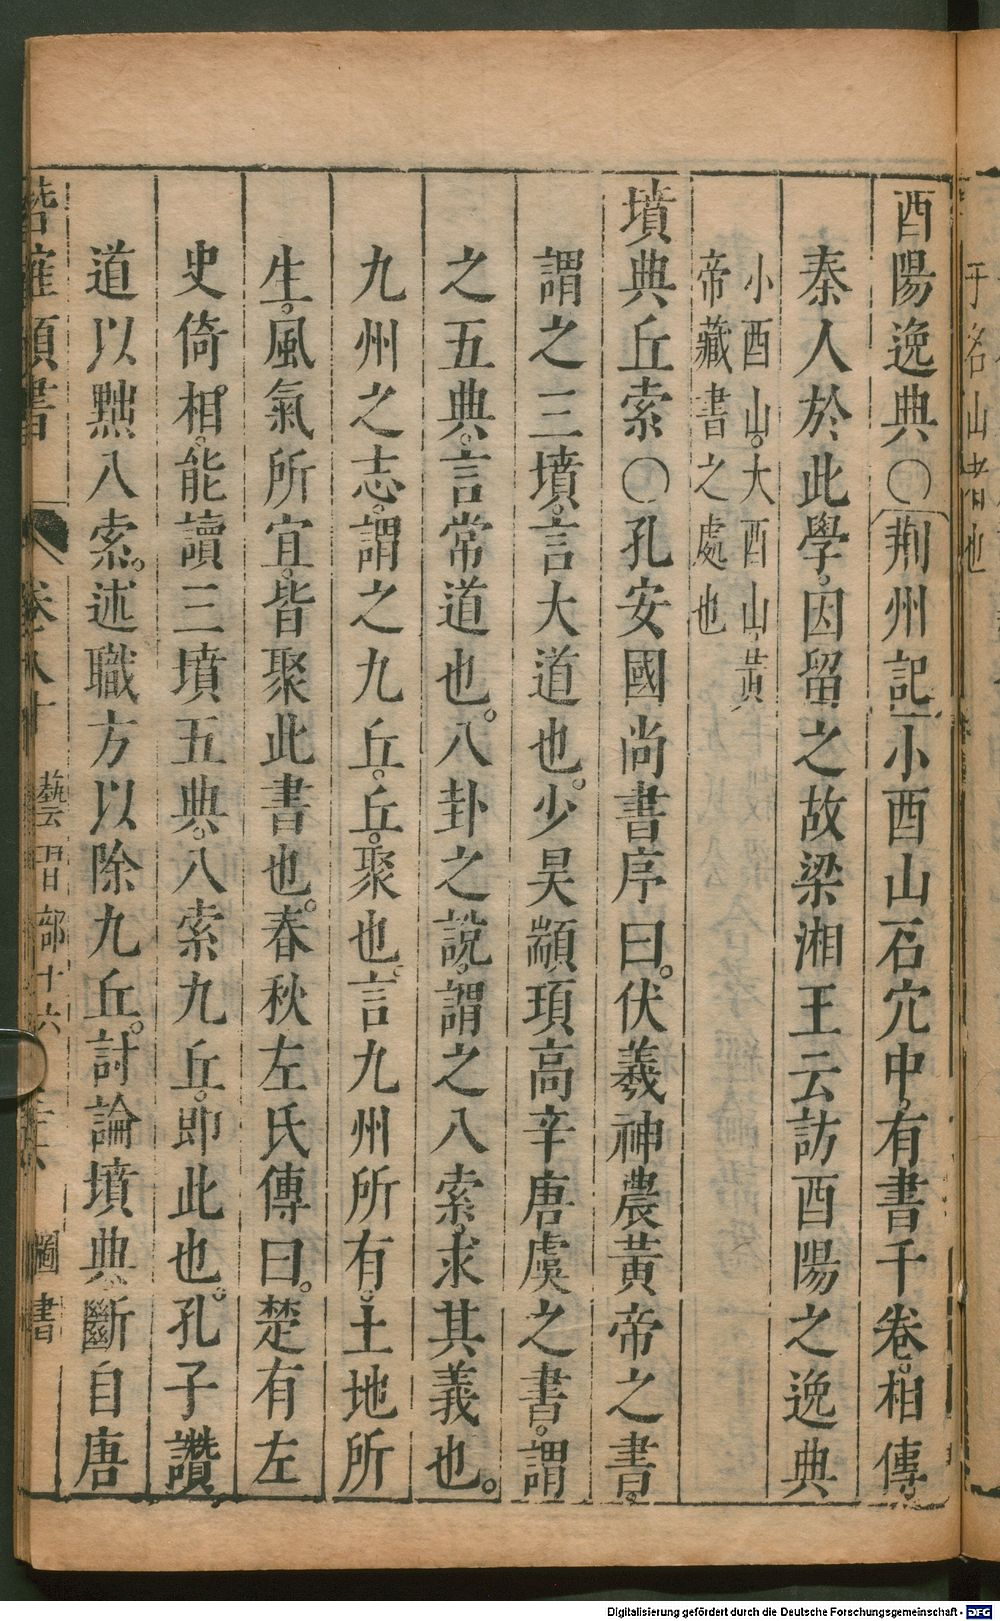 于名山者也
酉陽逸典〇荆州記小酉山石穴中。有書千卷。相傳。
秦人於此學。因留之故梁湘王云訪酉陽之逸典
小酉山。大酉山黄
帝藏書之處也
墳典丘索〇孔安國尚書序曰。伏羲神農黄帝之書。
謂之三墳。言大道也。少昊顓頊高辛唐虞之書。謂
之五典。言常道也。八卦之說。謂之八索。求其義也。
九州之志。謂之九丘。丘。聚也。言九州所有。土地所
生。風氣所宜。皆聚此書也。春秋左氏傳曰。楚有左
史倚相。能讀三墳五典。八索九丘。即此也。孔子讚
道以黜八索。述職方以除九丘。討論墳典。斷自唐
卷八十 藝習部十六 圖書
Digitalisierung gefördert durch die Deutsche Forschungsgemeinschaft - DFG